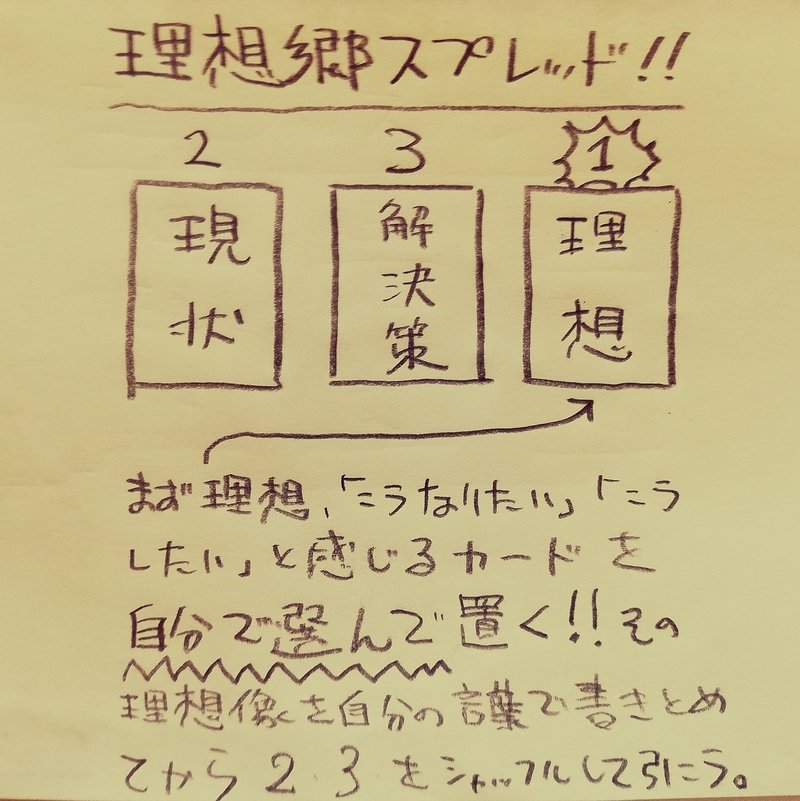 理想郷スプレッド!!
2 3 1
現状
解決策
理想
まず理想、「こうなりたい」「こう
したい」と感じるカードを
自分で選んで置く!!その
理想像を自分の言葉で書きとめ
てから2.3をシャッフルして引こう。